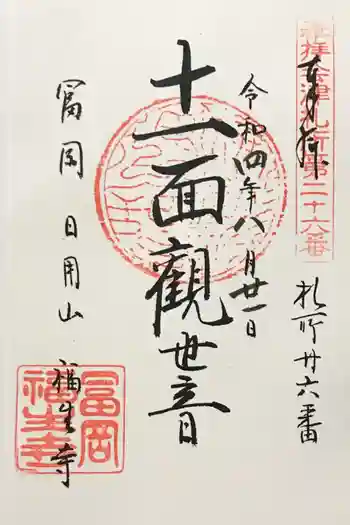 奉拝
会津札所第二十六番
札所廿六番
令和四年八月廿一日
十一面観世音
冨岡 日用山 福生寺
冨岡
福生寺